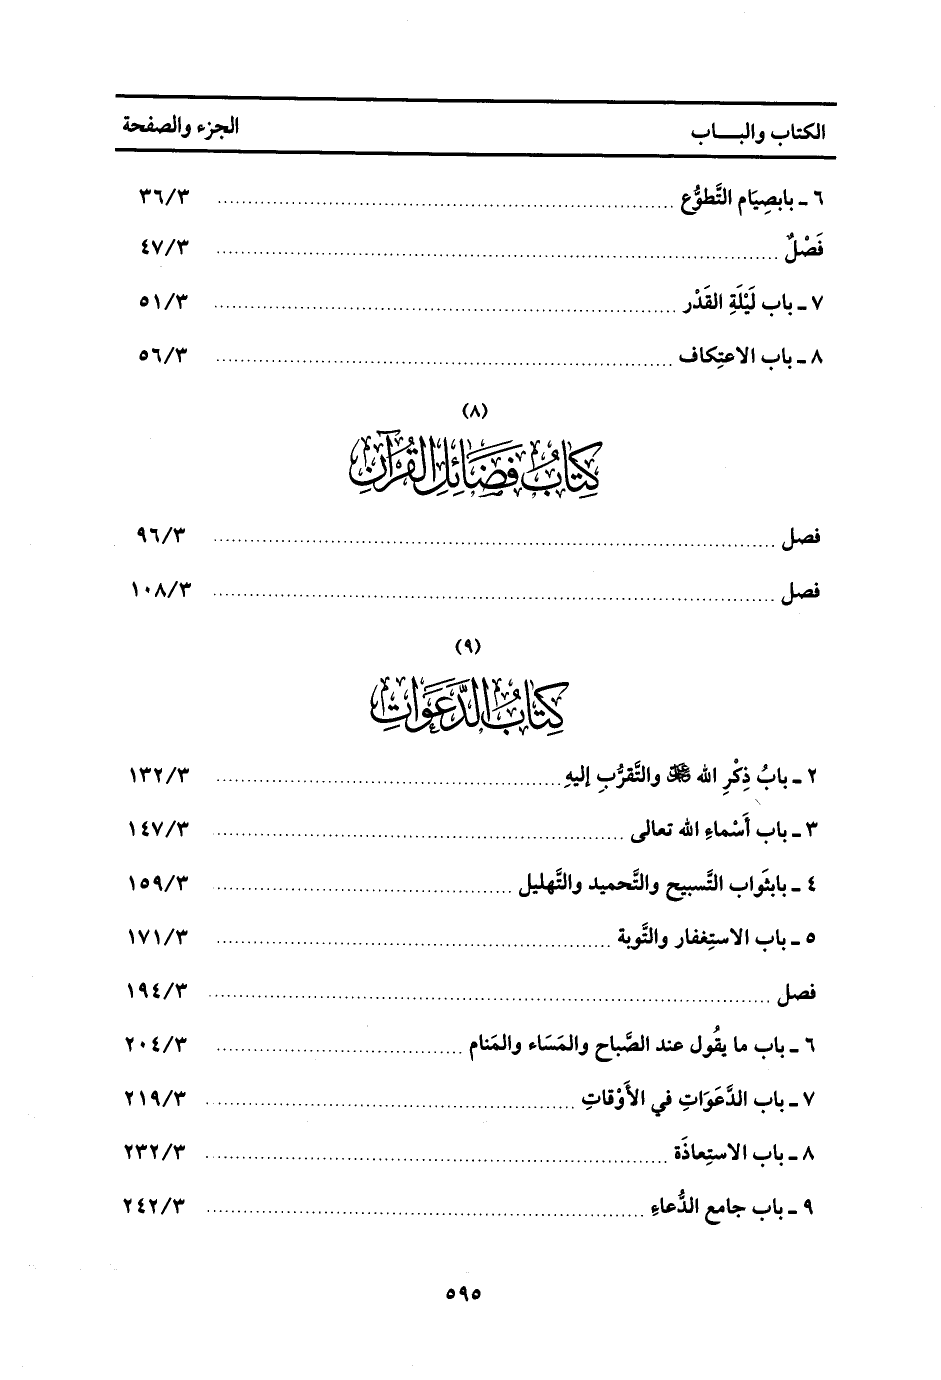 الكتاب والبـــاب الجزء والصفحة
٦ ـ بابصِيَام التَّطوُّع ................ ٣٦/٣
فَصْلٌ ................ ٤٧/٣
٧ ـ باب لَيْلَةِ القَدْر ................ ٥١/٣
٨ ـ باب الاعتِكاف ................ ٥٦/٣
(٨)
كِتَابُ فَضَائِلِ القُرْآنِ
فصل ................ ٩٦/٣
فصل ................ ١٠٨/٣
(٩)
كِتَابُ الدَّعَوَاتِ
٢ ـ بابُ ذِكْرِ الله ﷺ والتَّقرُّبِ إليهِ ................ ١٣٢/٣
٣ ـ باب أَسْماءِ الله تعالى ................ ١٤٧/٣
٤ ـ بابثَواب التَّسبيح والتَّحميد والتَّهليل ................ ١٥٩/٣
٥ ـ باب الاستِغفار والتَّوبة ................ ١٧١/٣
فصل ................ ١٩٤/٣
٦ ـ باب ما يقُول عند الصَّباح والمَسَاء والمَنام ................ ٢٠٤/٣
٧ ـ باب الدَّعَوَاتِ في الأَوْقاتِ ................ ٢١٩/٣
٨ ـ باب الاستِعاذَة ................ ٢٣٢/٣
٩ ـ باب جامع الدُّعاءِ ................ ٢٤٢/٣
٥٩٥